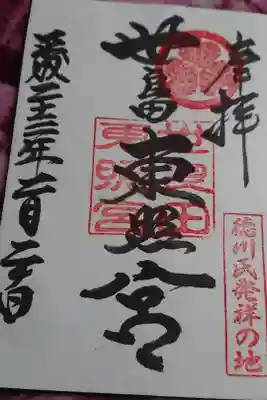 奉拝
世良田東照宮
世良田
東照宮
徳川氏発祥の地
平成二十三年二月二十日